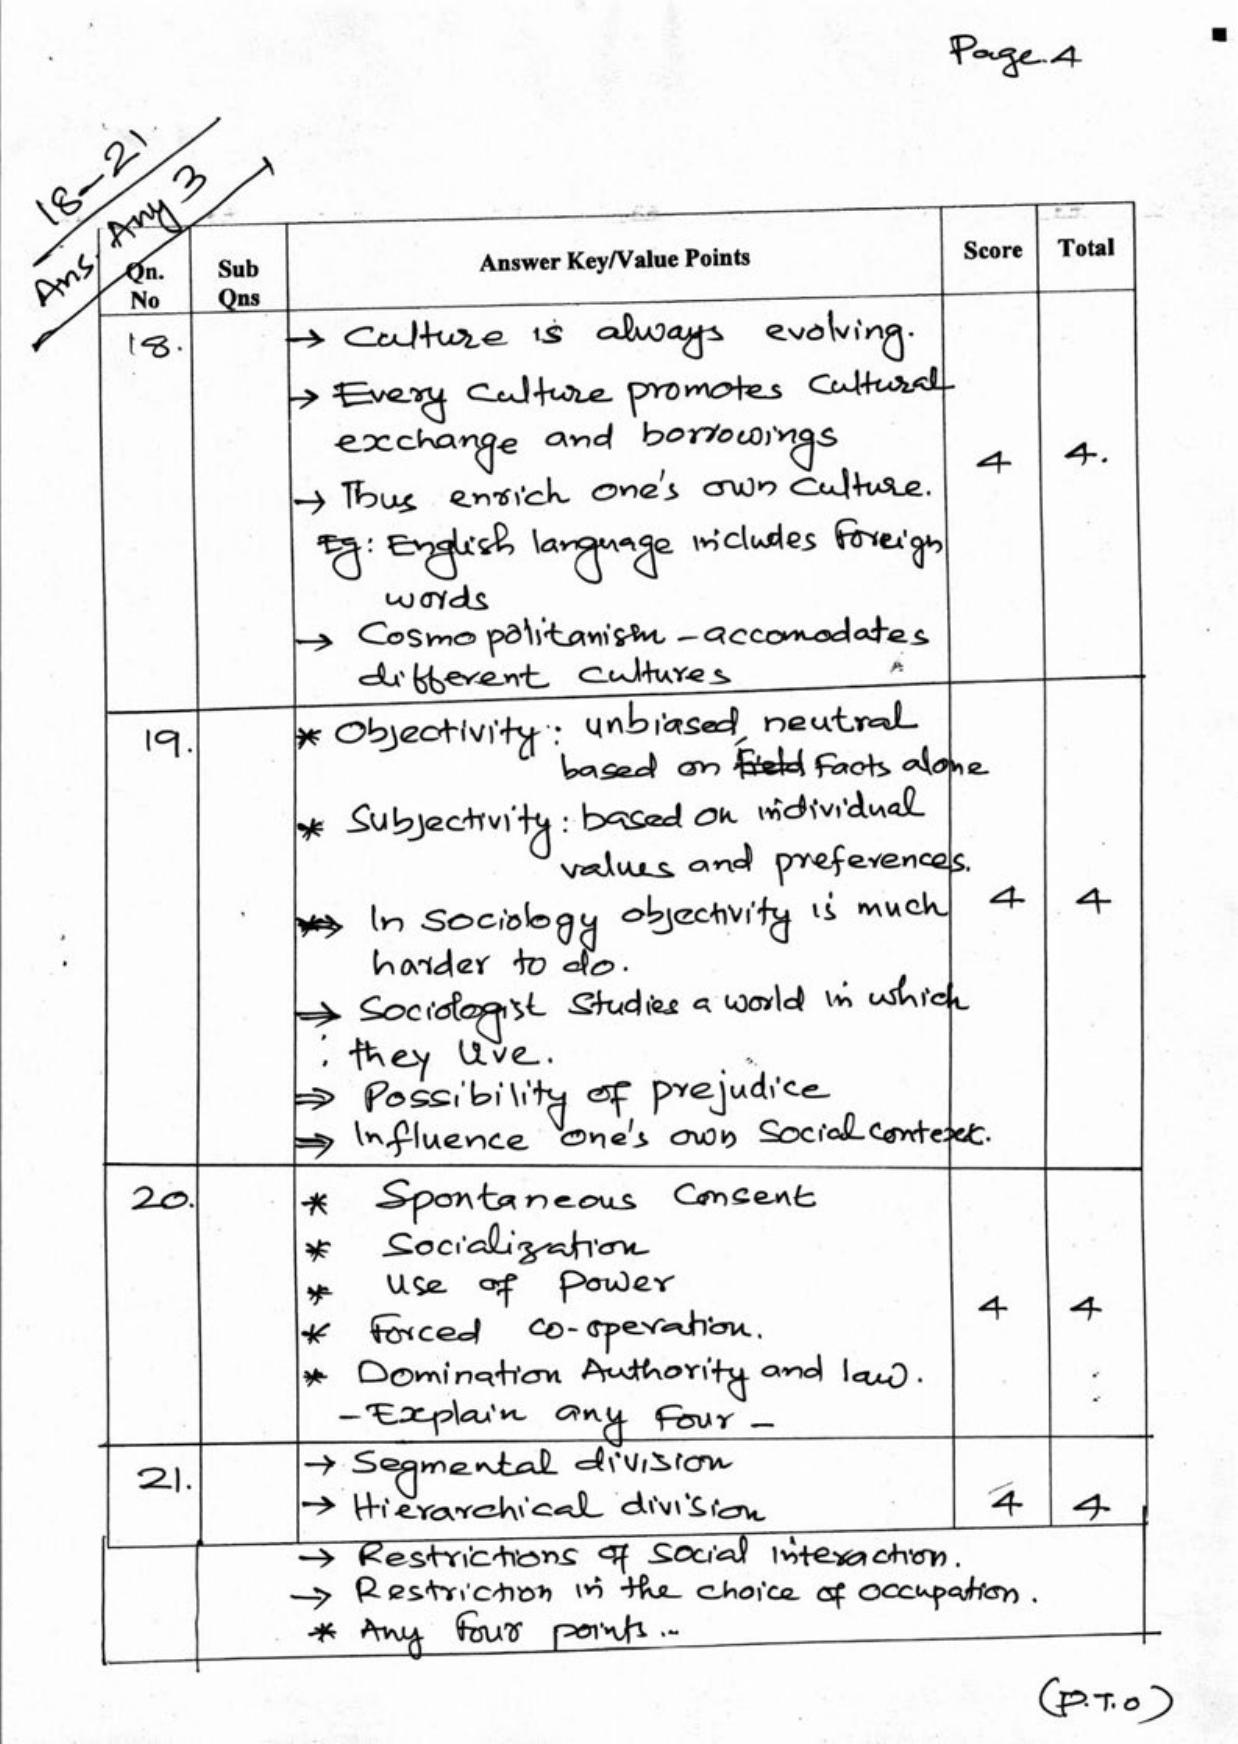 Page.4
18-21
Ans. Any 3
Qn. No
Sub Qns
Answer Key/Value Points
Score
Total
18.
→ Culture is always evolving.
→ Every Culture promotes Cultural
exchange and borrowings
4
4.
→ Thus enrich one's own culture.
Eg: English language includes foreign
words
→ Cosmopolitanism - accomodates
different cultures
19.
* Objectivity: unbiased, neutral
based on field Facts alone
* Subjectivity: based on individual
values and preferences.
⇒ In Sociology objectivity is much
4
4
harder to do.
⇒ Sociologist Studies a world in which
they live.
⇒ Possibility of prejudice
⇒ Influence one's own Social context.
20.
* Spontaneous Consent
* Socialization
* Use of Power
4
4
* Forced co-operation.
* Domination Authority and law.
- Explain any Four -
21.
→ Segmental division
→ Hierarchical division
4
4
→ Restrictions of Social interaction.
→ Restriction in the choice of occupation.
* Any four points...
(P.T.O)